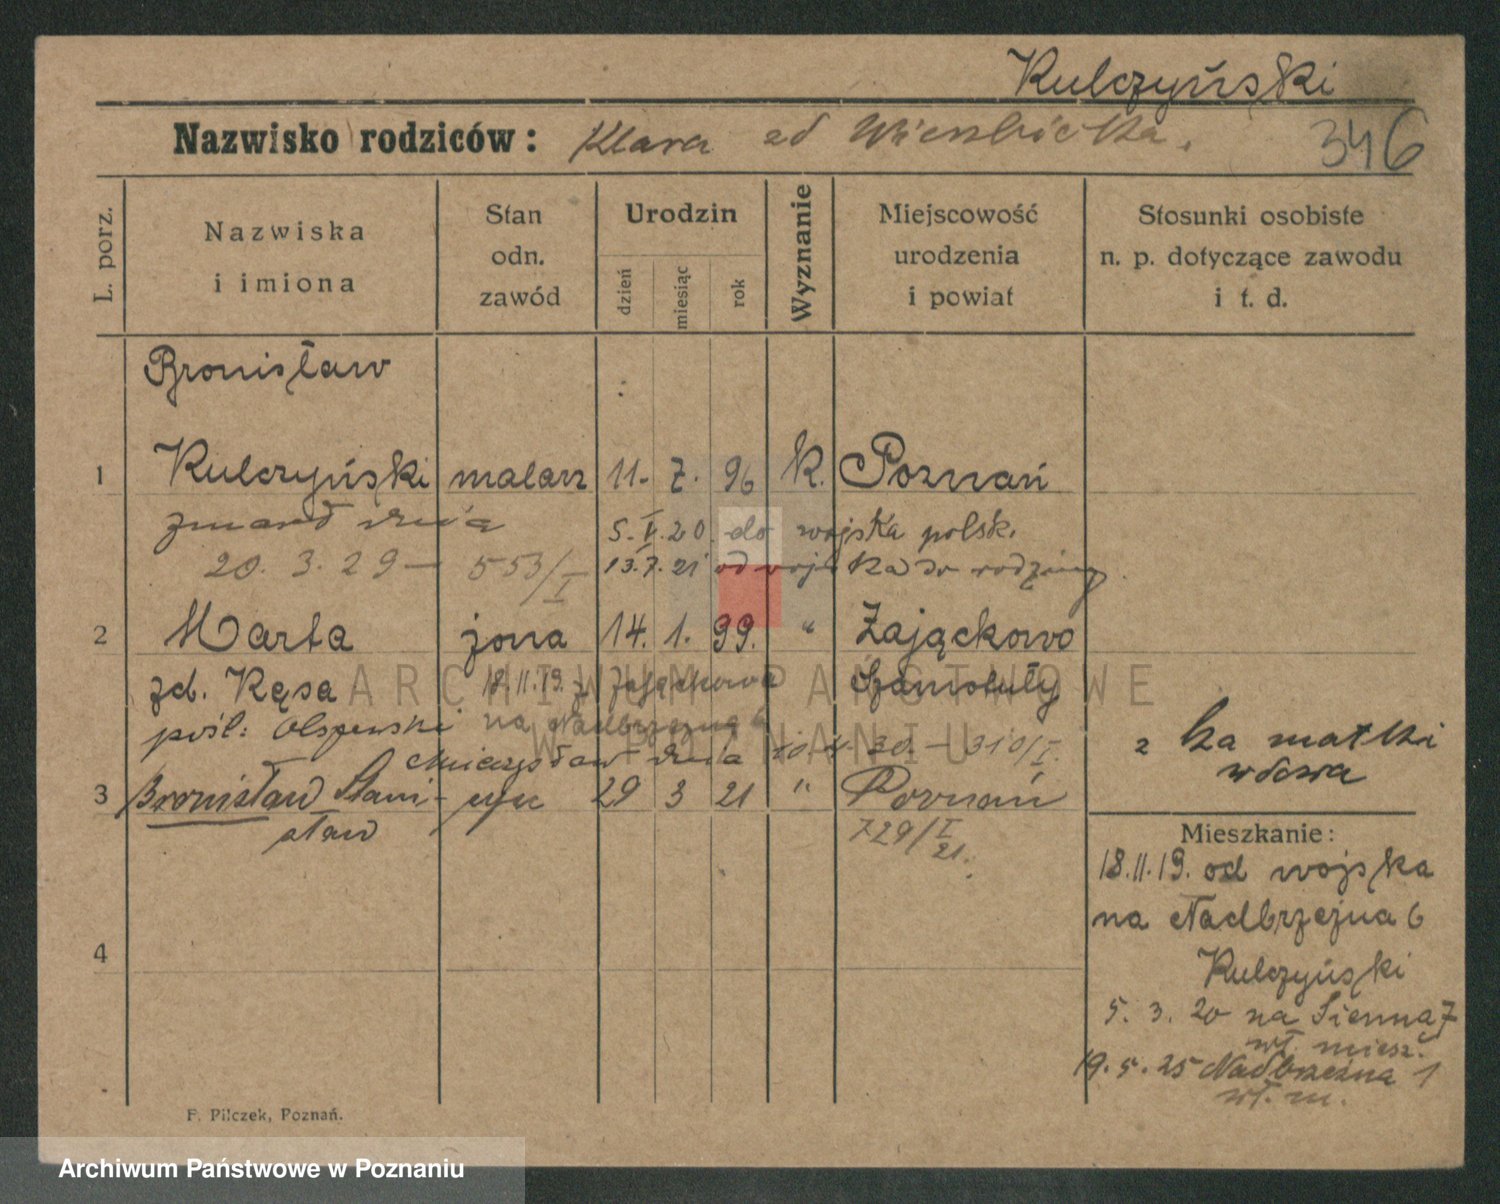 Kulczyński
Nazwisko rodziców: Klara zd Wierzbicka.
346
L. porz.
Nazwiska i imiona
Stan odn. zawód
Urodzin
dzień
miesiąc
rok
Wyznanie
Miejscowość urodzenia i powiat
Stosunki osobiste n. p. dotyczące zawodu i t. d.
Bronisław
1 Kulczyński malarz 11. 7. 96 k. Poznań
zmarł dnia 5.V.20. do wojska polsk.
20. 3. 29 — 553/I 13.7.21 od wojska do rodziny
2 Marta żona 14. 1. 99. " Zajączkowo
zd. Kęsa 18.11.19. z Zajączkowa Szamotuły
pośl: Olszewski na Nadbrzeżną 6
Mieczysław dnia 30. — 310/I.
2 ka matki
wdowa
3 Bronisław Stani- syn 29 3 21 " Poznań
sław 729/I 21.
4
Mieszkanie:
18.11.19. od wojska
na Nadbrzeżna 6
Kulczyński
5. 3. 20 na Sienna 7
wł. miesz.
19. 5. 25 Nadbrzeżna 1
wł. m.
F. Pilczek, Poznań.
ARCHIWUM PAŃSTWOWE
W POZNANIU
Archiwum Państwowe w Poznaniu